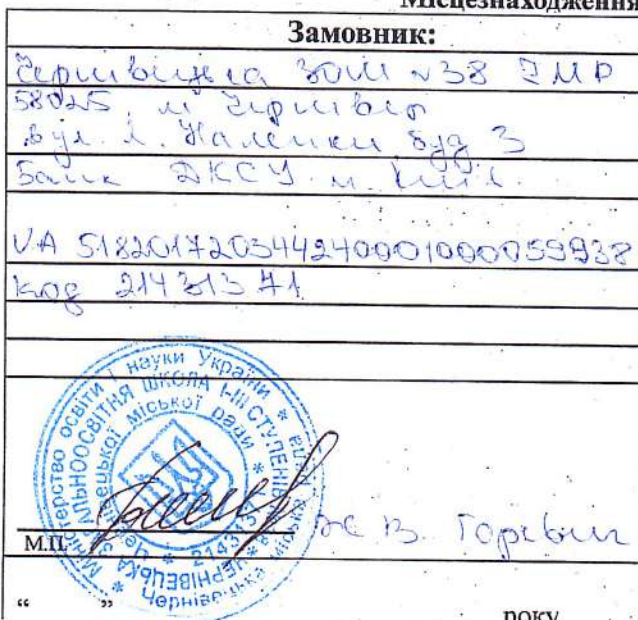 Місцезнаходження
Замовник:
Чернівецька ЗОШ №38 ЧМР
58025, м Чернівці
вул. Л. Наленки буд 3
Банк ДКСУ м. Київ.
UA 518201720344240001000059938
код 21431371
Міністерство освіти і науки України
ЗАГАЛЬНООСВІТНЯ ШКОЛА І-ІІІ СТУПЕНІВ
Чернівецької міської ради
М.П.
В. Горевич
“ ” року